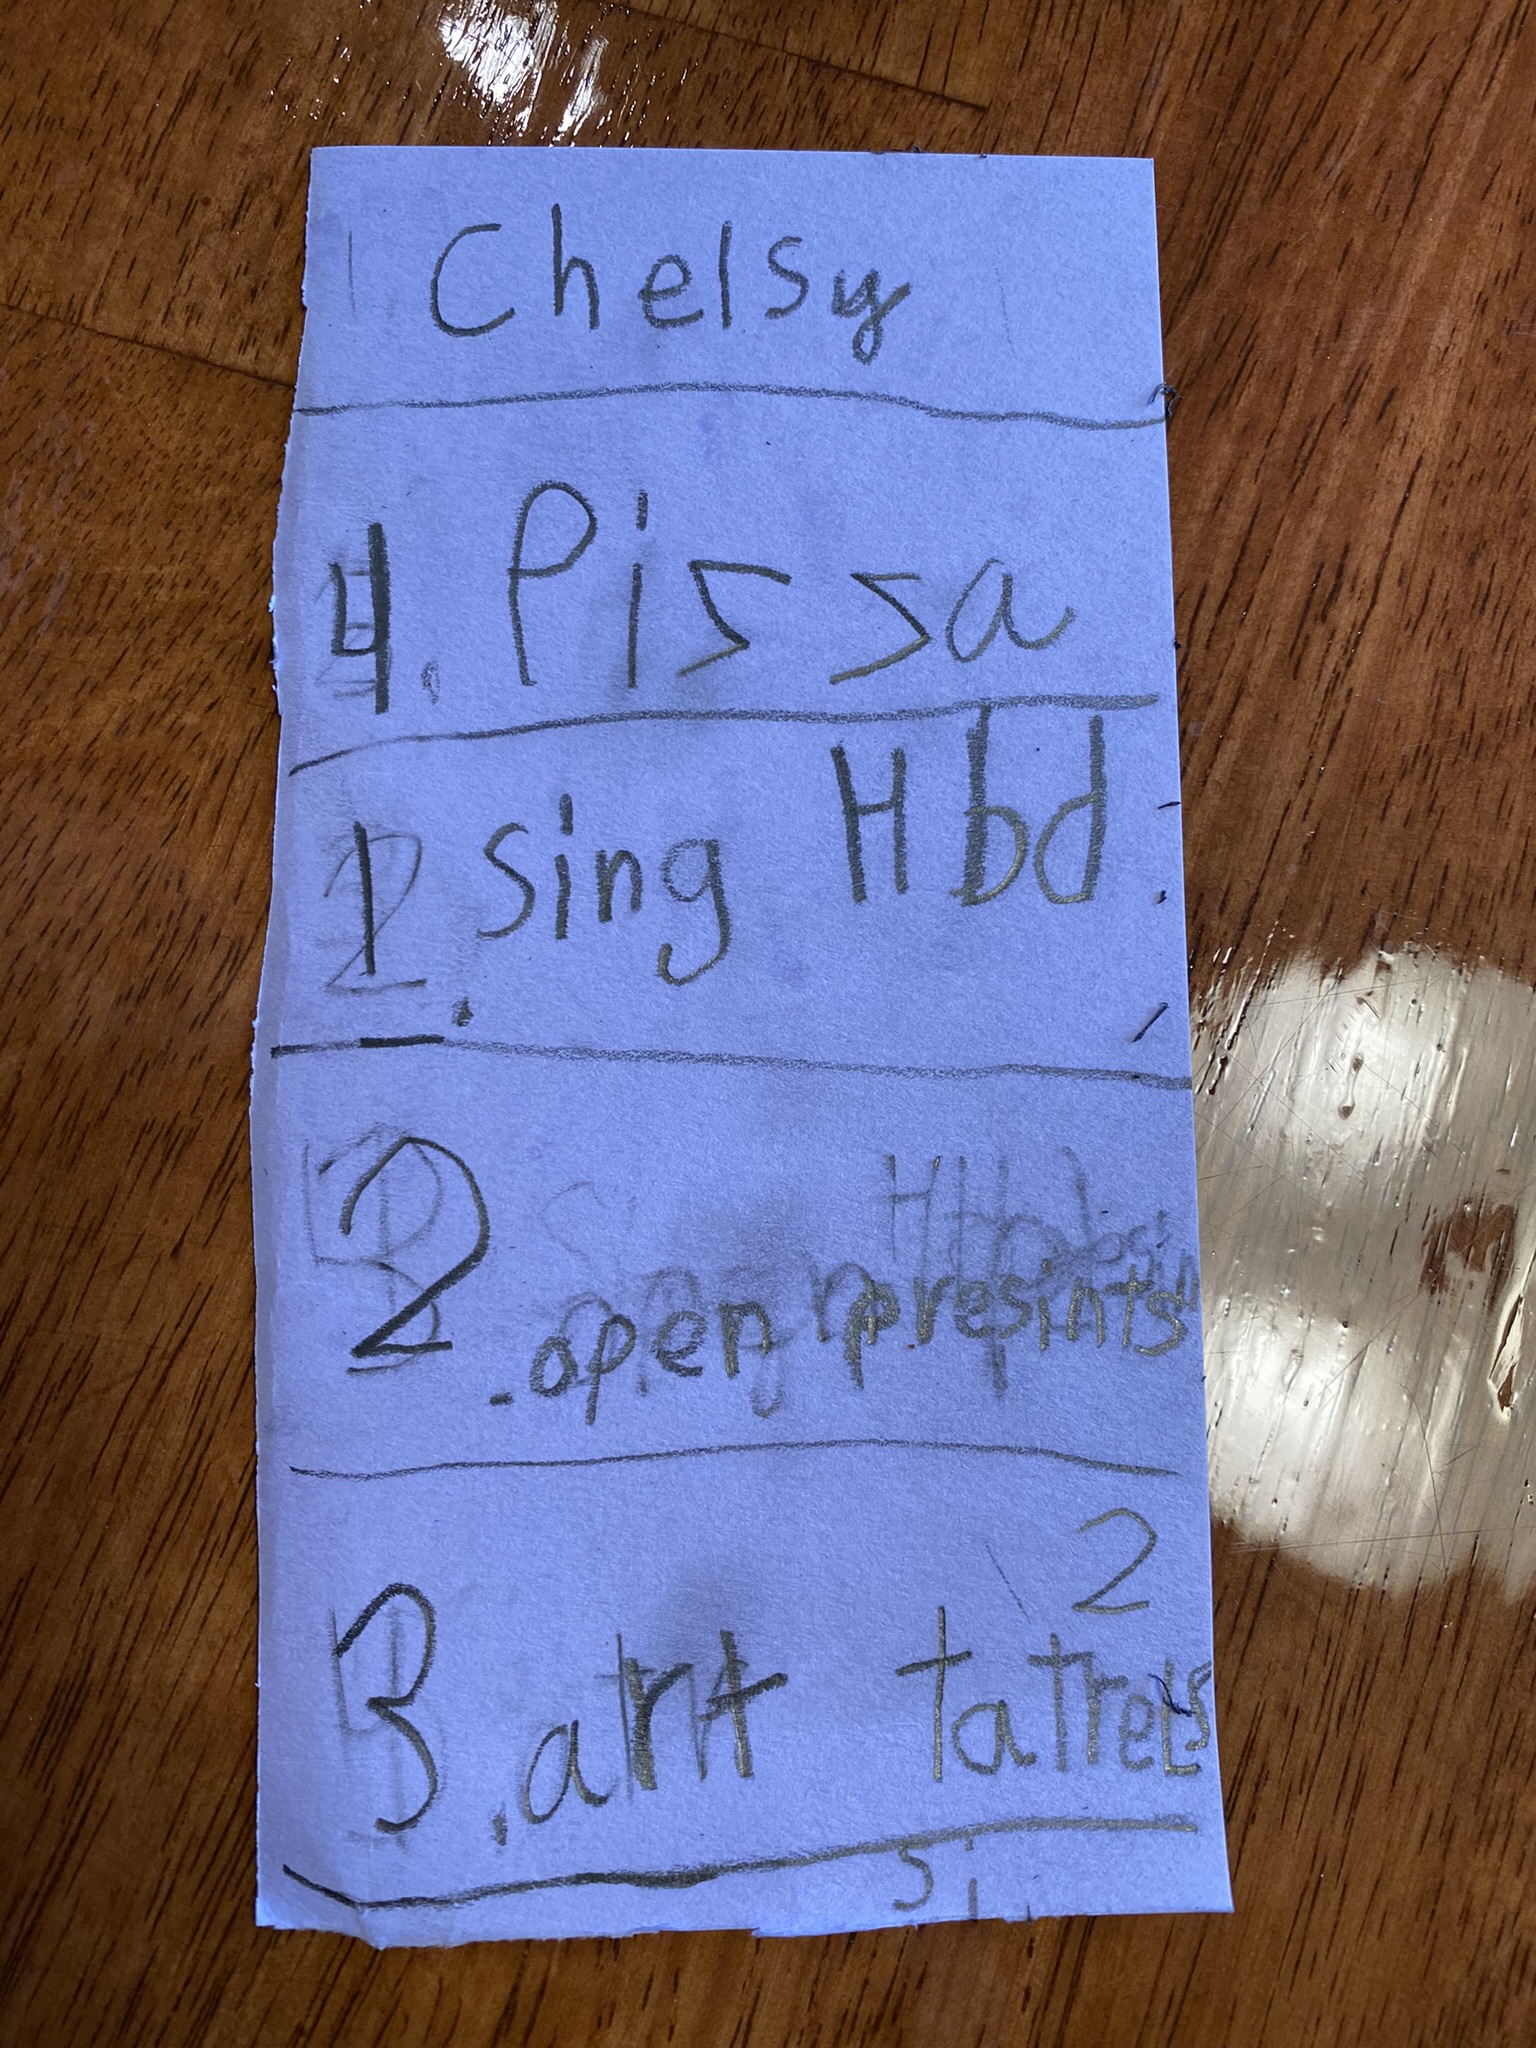 Chelsy
4. Pissa
1. sing Hbd
2. open presints
2
3. art tatrels